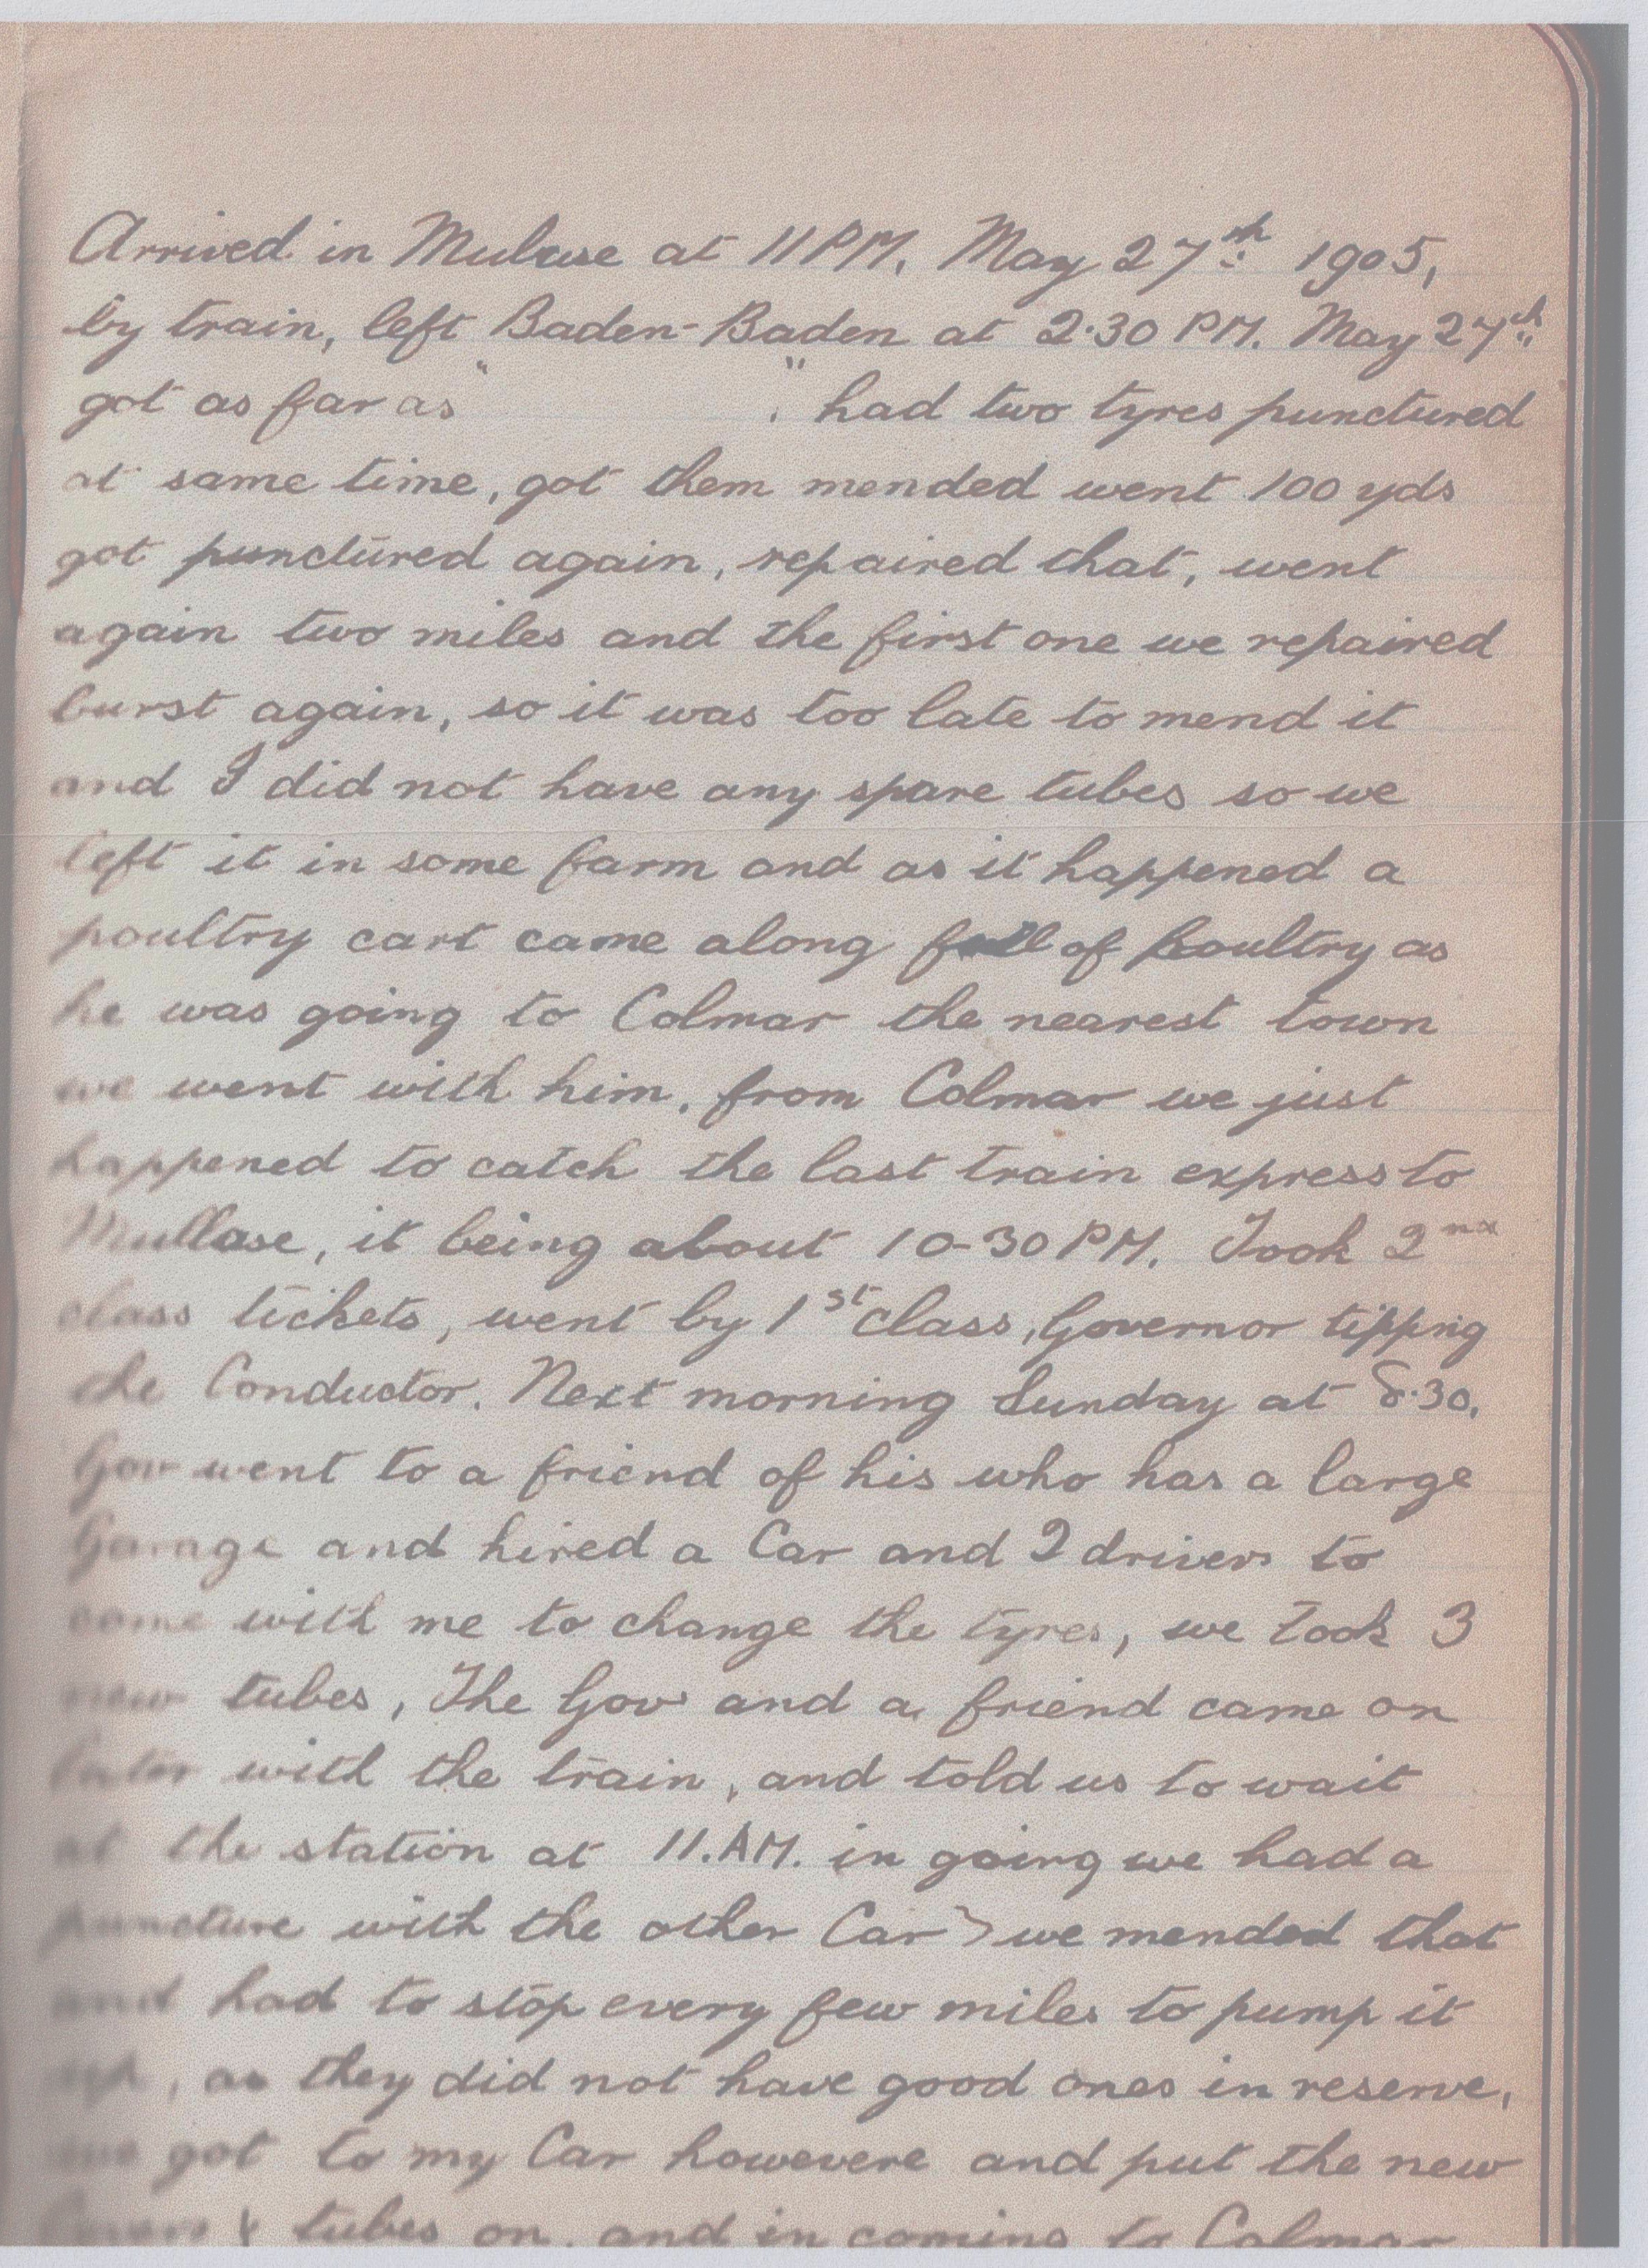 Arrived in Muluse at 11 PM. May 27th 1905,
by train, left Baden-Baden at 2.30 PM. May 27th
got as far as " " had two tyres punctured
at same time, got them mended went 100 yds
got punctured again, repaired that, went
again two miles and the first one we repaired
burst again, so it was too late to mend it
and I did not have any spare tubes so we
left it in some farm and as it happened a
poultry cart came along full of poultry as
he was going to Colmar the nearest town
we went with him, from Colmar we just
happened to catch the last train express to
Mullase, it being about 10-30 PM. Took 2nd
class tickets, went by 1st class, Governor tipping
the Conductor. Next morning Sunday at 8.30.
Gov went to a friend of his who has a large
Garage and hired a Car and 2 drivers to
come with me to change the tyres, we took 3
new tubes, The Gov and a friend came on
later with the train, and told us to wait
at the station at 11.AM. in going we had a
puncture with the other Car we mended that
and had to stop every few miles to pump it
up, as they did not have good ones in reserve,
we got to my Car howevere and put the new
Covers & tubes on, and in coming to Colmar